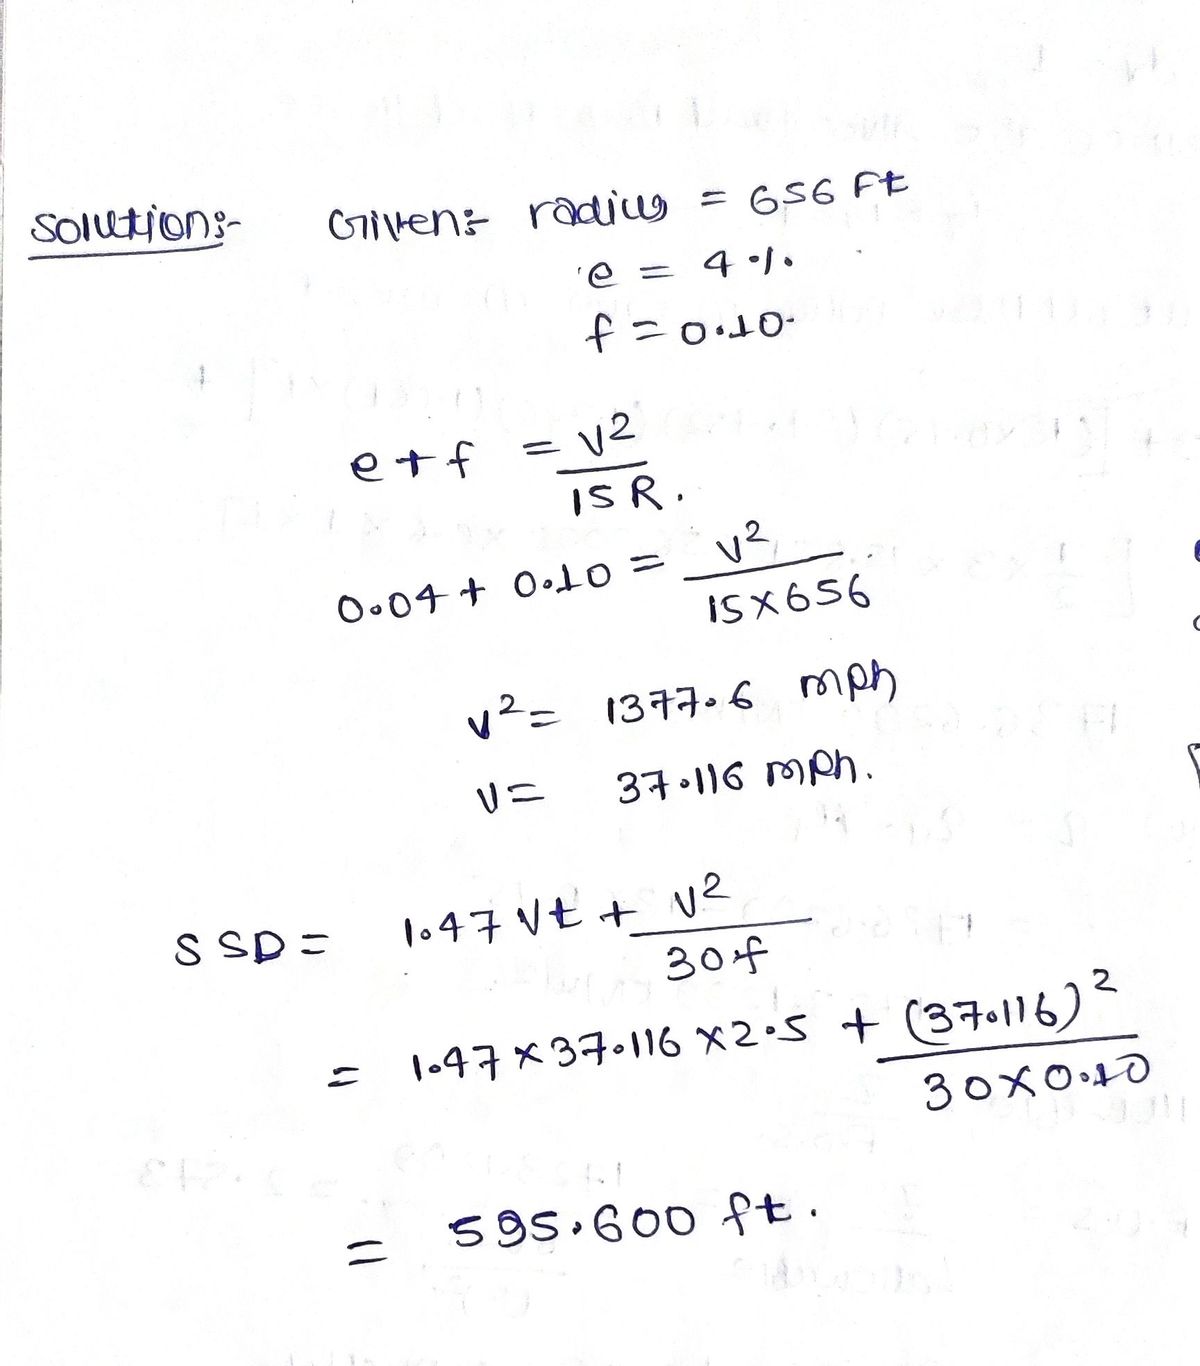 Solution:- Given:- radius = 656 Ft
e = 4 %.
f = 0.10.
e + f = V²/15R.
0.04 + 0.10 = V²/15×656
V² = 1377.6 mph
V = 37.116 mph.
SSD = 1.47 Vt + V²/30f
= 1.47 × 37.116 × 2.5 + (37.116)²/30×0.10
= 595.600 ft.